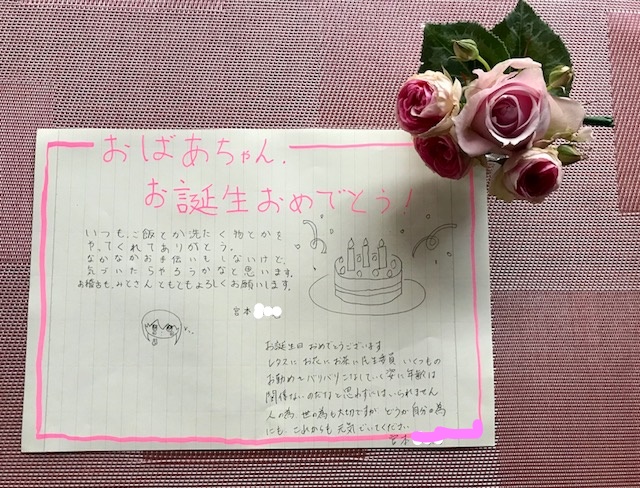 おばあちゃん、
お誕生おめでとう!
いつも、ご飯とか洗たく物とかを
やってくれてありがとう。
なかなかお手伝いもしないけど、
気づいたらやろうかなと思います。
お稽古も、みとさんともどもよろしくお願いします。
宮本
お誕生日 おめでとうございます
お花に 民生委員 いくつもの
お勤めをバリバリこなしている姿に年齢は
関係ないのだなと思わずにはいられません
人の為、世の為も大切ですが どうか自分の為
にも これからも 元気でいてください
宮本